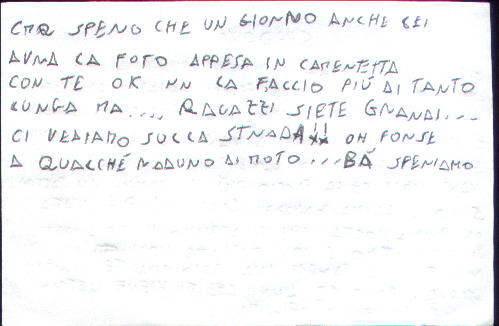 CMQ SPERO CHE UN GIORNO ANCHE LEI
AVRA LA FOTO APPESA IN CAMERETTA
CON TE OK NN LA FACCIO PIÙ DI TANTO
LUNGA MA.... RAGAZZI SIETE GRANDI...
CI VEDIAMO SULLA STRADA!! OH FORSE
A QUALCHÉ RADUNO DI MOTO... BÁ SPERIAMO